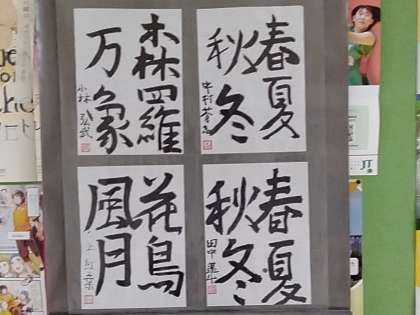 春夏
秋冬
中村
森羅
万象
小林
春夏
秋冬
田中
花鳥
風月
JT